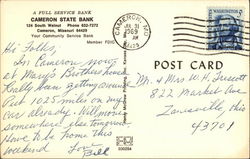 A FULL SERVICE BANK
CAMERON STATE BANK
124 South Walnut Phone 632-7272
Cameron, Missouri 64429
Your Community Service Bank
Member FDIC
CAMERON, MO
JUL 31
1969
AM
POST CARD
Hi Folks,
In Cameron now
at Mary's Brothers house
Really been getting around
Put 1025 miles on my
car already. Will move
somewhere else tonight
Have to be home this
weekend Love
Bill
Mr. & Mrs W.H. Fossett
822 Market Ave
Zanesville, Ohio
43701